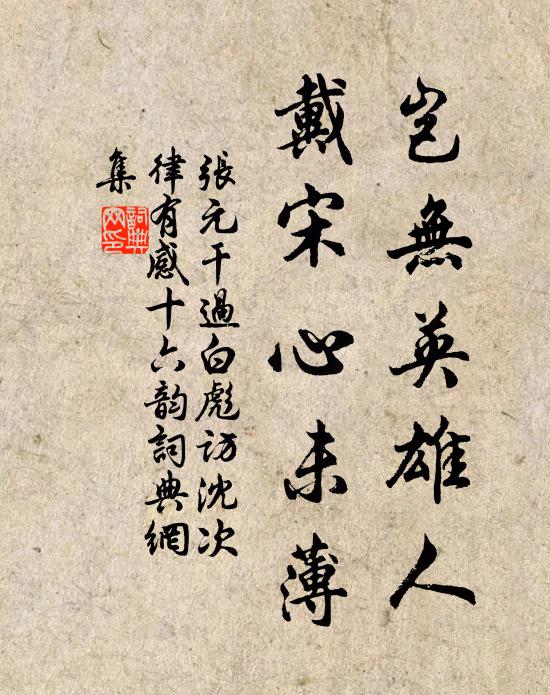 豈無英雄人
戴宋心未薄
張元干過白彪訪沈次
律有感十六韵詞典網
集
詞典網印